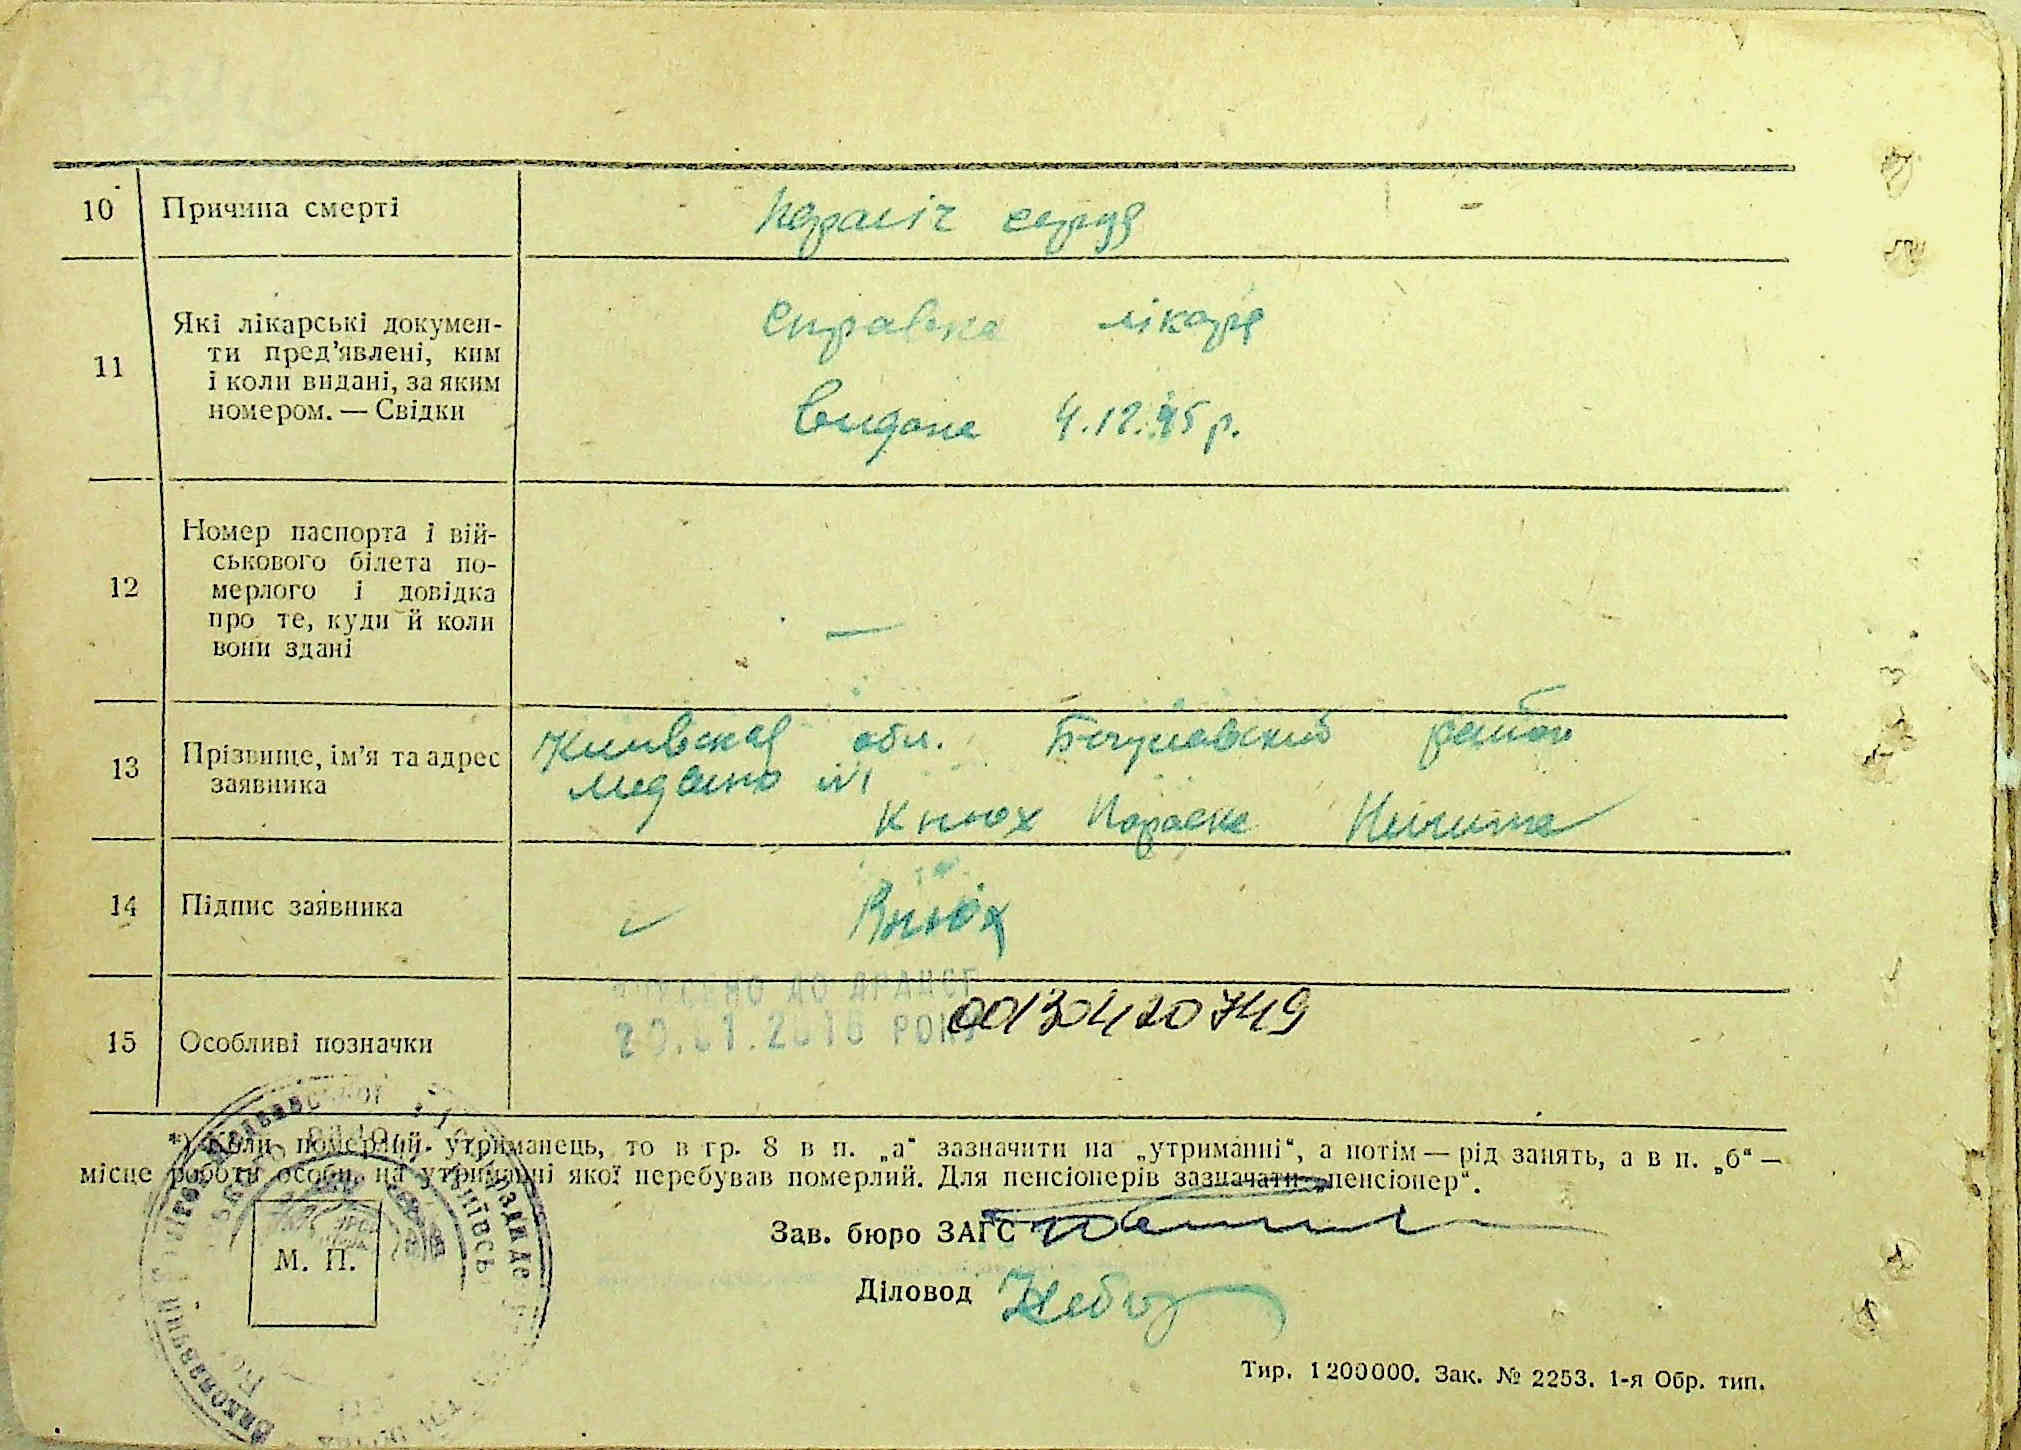 10 Причина смерті Параліч серця
11 Які лікарські докумен-
ти пред’явлені, ким
і коли видані, за яким
номером. — Свідки
Справка лікаря
видана 4.12.45 р.
12 Номер паспорта і вій-
ськового білета по-
мерлого і довідка
про те, куди й коли
вони здані
—
13 Прізвище, ім’я та адрес
заявника
Київская обл. Богуславский район
Медвино №1
Кнюх Параска Никита
14 Підпис заявника Кнюх
15 Особливі позначки
ДО ДРАЦСГ
РОКУ
00130420749
*) Коли померлий утриманець, то в гр. 8 в п. „а“ зазначити на „утриманні“, а потім — рід занять, а в п. „б“ —
місце роботи особи, на утриманні якої перебував померлий. Для пенсіонерів зазначати „пенсіонер“.
Зав. бюро ЗАГС
М. П.
Діловод
Тир. 1200000. Зак. № 2253. 1-я Обр. тип.